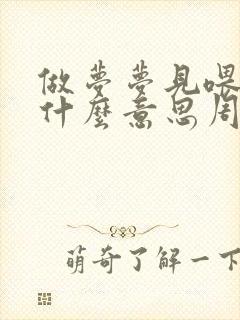 做夢夢見喂
什麼意思周
萌奇了解一下